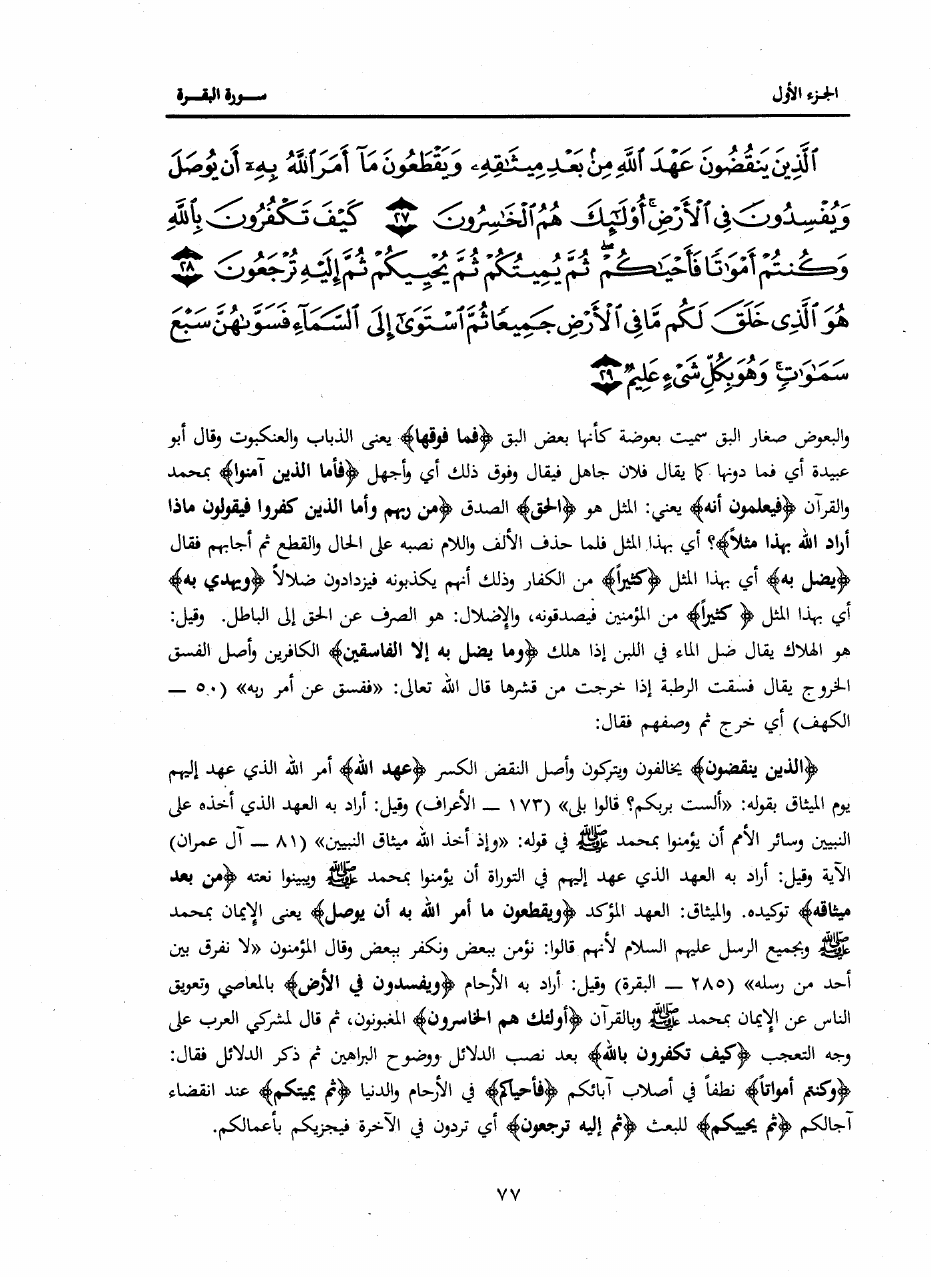 الجزء الأول
سورة البقرة
ٱلَّذِينَ يَنقُضُونَ عَهْدَ ٱللَّهِ مِنۢ بَعْدِ مِيثَٰقِهِۦ وَيَقْطَعُونَ مَآ أَمَرَ ٱللَّهُ بِهِۦٓ أَن يُوصَلَ
وَيُفْسِدُونَ فِي ٱلْأَرْضِ ۚ أُو۟لَٰٓئِكَ هُمُ ٱلْخَٰسِرُونَ ﴿٢٧﴾ كَيْفَ تَكْفُرُونَ بِٱللَّهِ
وَكُنتُمْ أَمْوَٰتًا فَأَحْيَٰكُمْ ۖ ثُمَّ يُمِيتُكُمْ ثُمَّ يُحْيِيكُمْ ثُمَّ إِلَيْهِ تُرْجَعُونَ ﴿٢٨﴾
هُوَ ٱلَّذِى خَلَقَ لَكُم مَّا فِى ٱلْأَرْضِ جَمِيعًا ثُمَّ ٱسْتَوَىٰٓ إِلَى ٱلسَّمَآءِ فَسَوَّىٰهُنَّ سَبْعَ
سَمَٰوَٰتٍ ۚ وَهُوَ بِكُلِّ شَىْءٍ عَلِيمٌ ﴿٢٩﴾
والبعوض صغار البق سميت بعوضة كأنها بعض البق ﴿فما فوقها﴾ يعنى الذباب والعنكبوت وقال أبو
عبيدة أي فما دونها كما يقال فلان جاهل فيقال وفوق ذلك أي وأجهل ﴿فأما الذين آمنوا﴾ بمحمد
والقرآن ﴿فيعلمون أنه﴾ يعني: المثل هو ﴿الحق﴾ الصدق ﴿من ربهم وأما الذين كفروا فيقولون ماذا
أراد الله بهذا مثلاً﴾؟ أي بهذا المثل فلما حذف الألف واللام نصبه على الحال والقطع ثم أجابهم فقال
﴿يضل به﴾ أي بهذا المثل ﴿كثيراً﴾ من الكفار وذلك أنهم يكذبونه فيزدادون ضلالاً ﴿ويهدي به﴾
أي بهذا المثل ﴿ كثيراً﴾ من المؤمنين فيصدقونه، والإضلال: هو الصرف عن الحق إلى الباطل. وقيل:
هو الهلاك يقال ضل الماء في اللبن إذا هلك ﴿وما يضل به إلا الفاسقين﴾ الكافرين وأصل الفسق
الخروج يقال فسقت الرطبة إذا خرجت من قشرها قال الله تعالى: «ففسق عن أمر ربه» (٥٠ ــ
الكهف) أي خرج ثم وصفهم فقال:
﴿الذين ينقضون﴾ يخالفون ويتركون وأصل النقض الكسر ﴿عهد الله﴾ أمر الله الذي عهد إليهم
يوم الميثاق بقوله: «ألست بربكم؟ قالوا بلى» (١٧٣ ــ الأعراف) وقيل: أراد به العهد الذي أخذه على
النبيين وسائر الأمم أن يؤمنوا بمحمد ﷺ في قوله: «وإذ أخذ الله ميثاق النبيين» (٨١ ــ آل عمران)
الآية وقيل: أراد به العهد الذي عهد إليهم في التوراة أن يؤمنوا بمحمد ﷺ ويبينوا نعته ﴿من بعد
ميثاقه﴾ توكيده. والميثاق: العهد المؤكد ﴿ويقطعون ما أمر الله به أن يوصل﴾ يعنى الإيمان بمحمد
ﷺ وبجميع الرسل عليهم السلام لأنهم قالوا: نؤمن ببعض ونكفر ببعض وقال المؤمنون «لا نفرق بين
أحد من رسله» (٢٨٥ ــ البقرة) وقيل: أراد به الأرحام ﴿ويفسدون في الأرض﴾ بالمعاصي وتعويق
الناس عن الإيمان بمحمد ﷺ وبالقرآن ﴿أولئك هم الخاسرون﴾ المغبونون، ثم قال لمشركي العرب على
وجه التعجب ﴿كيف تكفرون بالله﴾ بعد نصب الدلائل ووضوح البراهين ثم ذكر الدلائل فقال:
﴿وكنتم أمواتاً﴾ نطفاً في أصلاب آبائكم ﴿فأحياكم﴾ في الأرحام والدنيا ﴿ثم يميتكم﴾ عند انقضاء
آجالكم ﴿ثم يحييكم﴾ للبعث ﴿ثم إليه ترجعون﴾ أي تردون في الآخرة فيجزيكم بأعمالكم.
٧٧